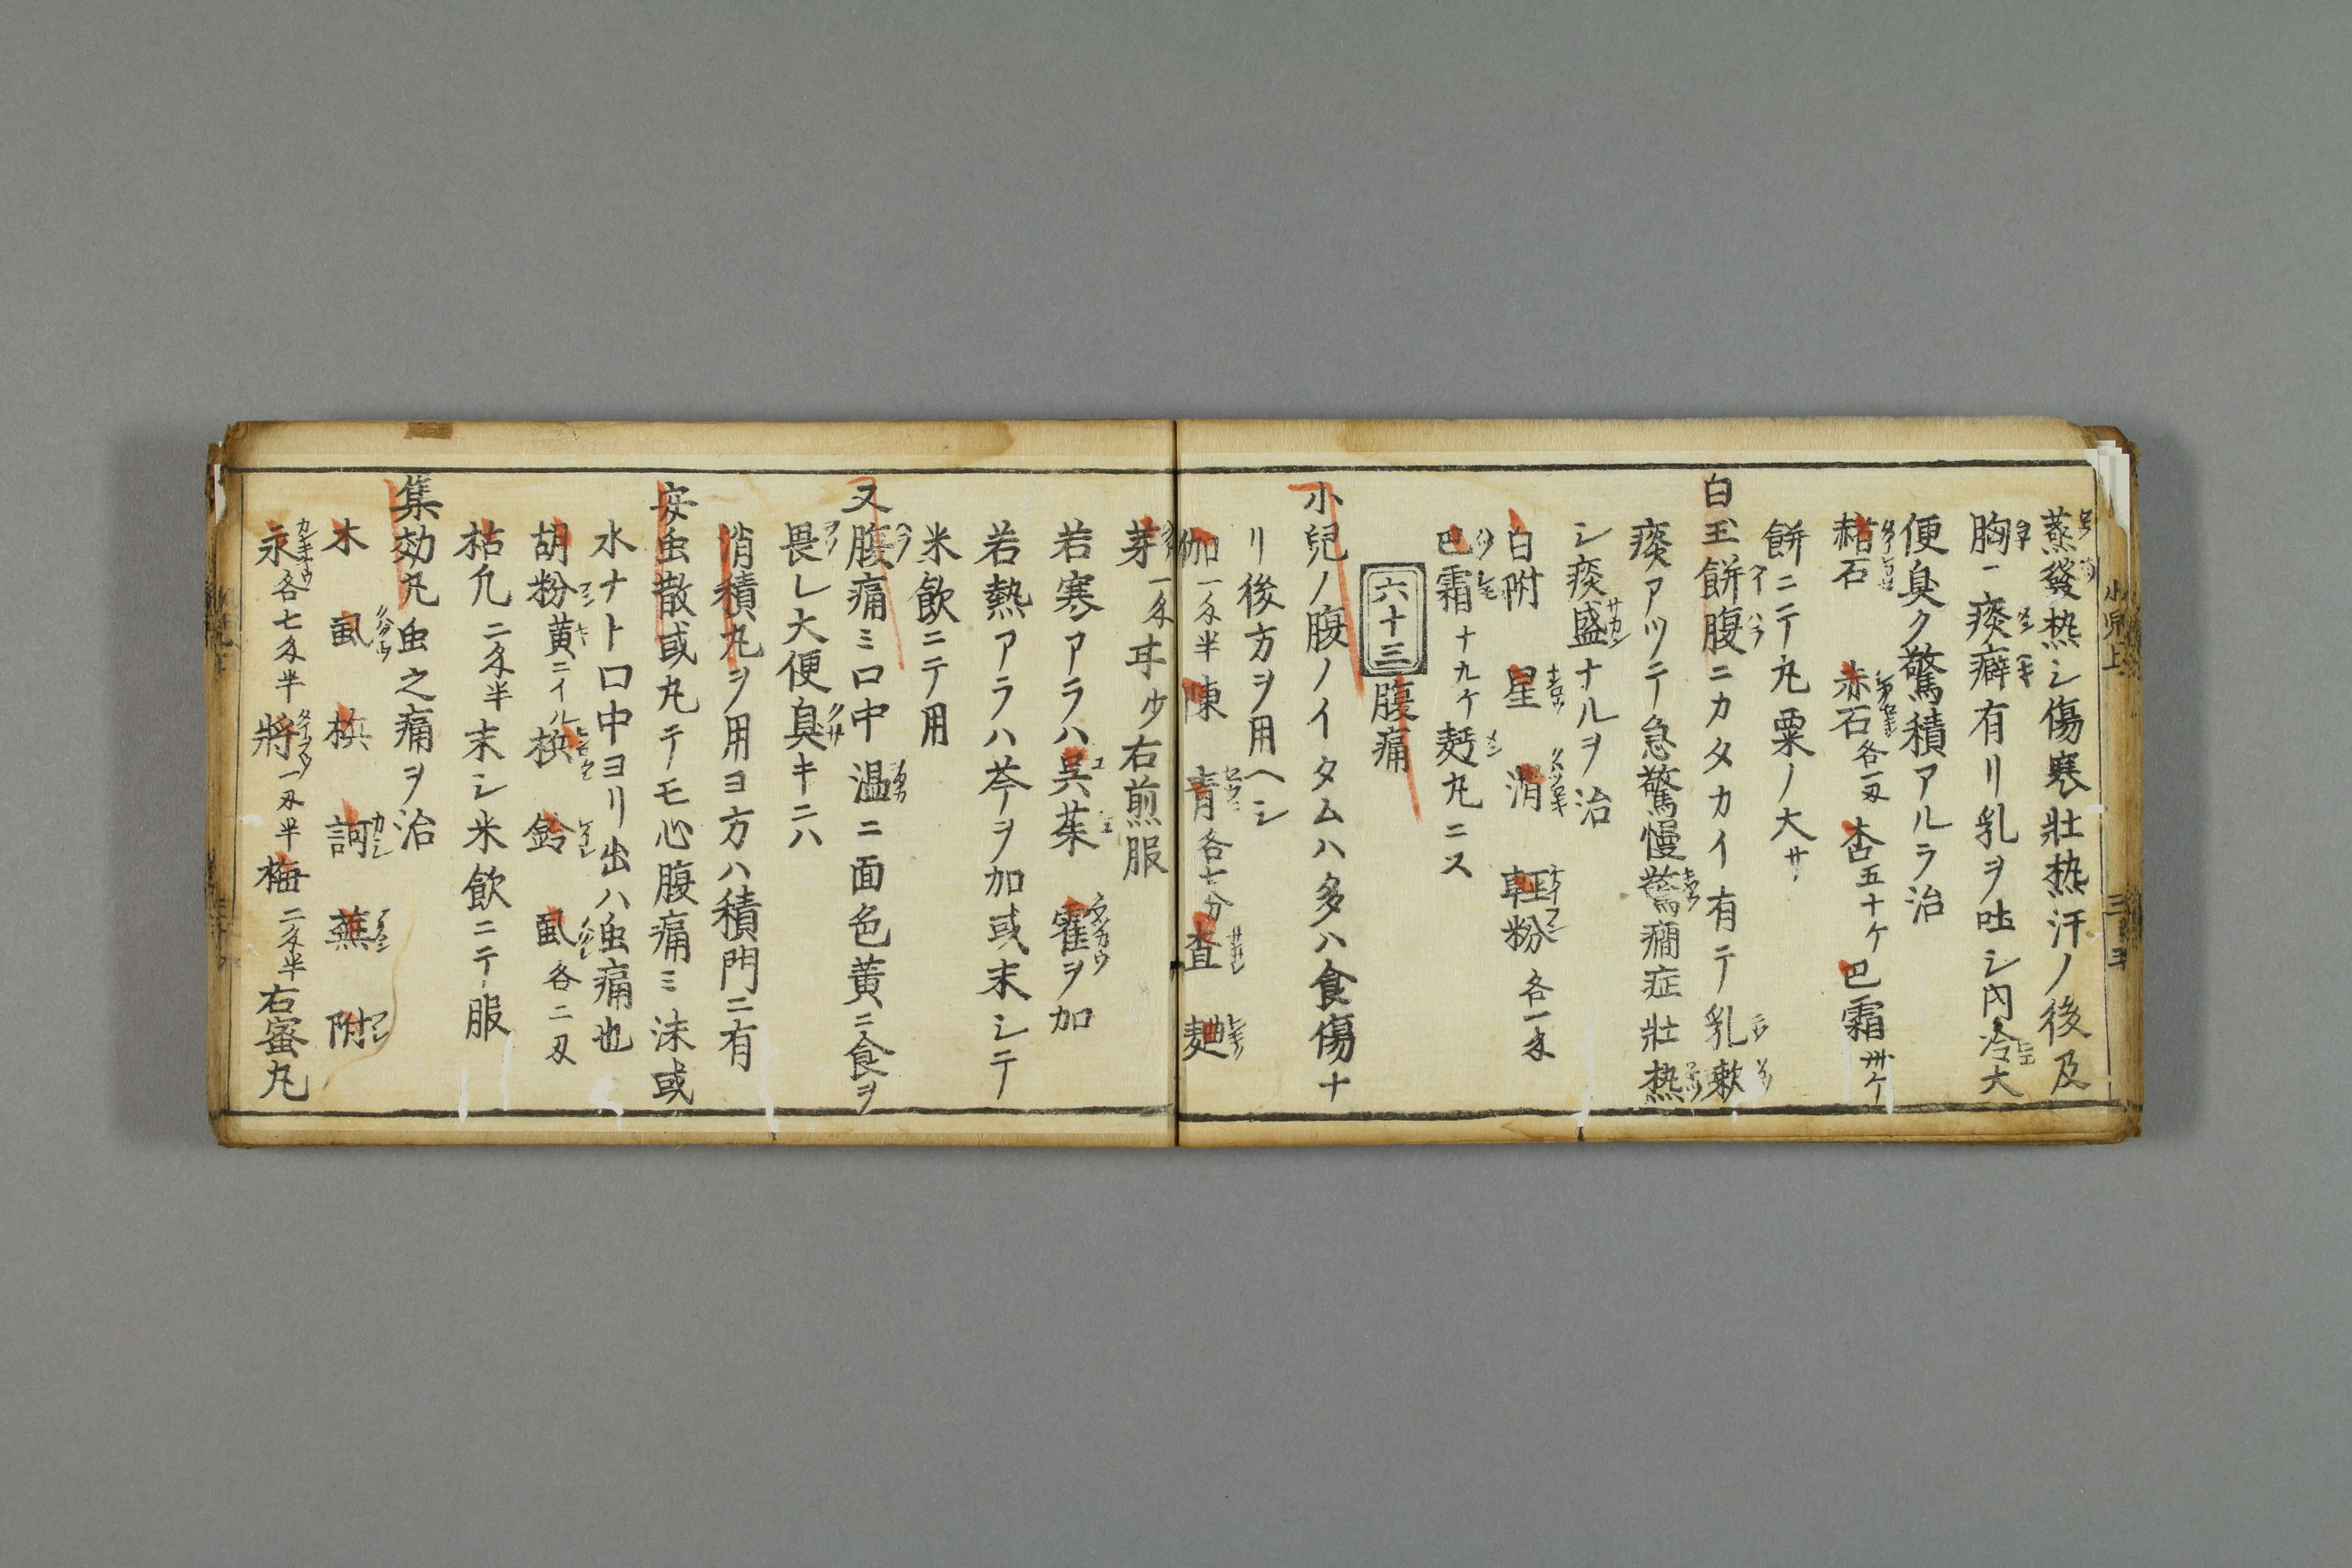 蒸發热シ傷寒壮热汗ノ後及
胸ニ痰癖有リ乳ヲ吐シ内冷大
便臭ク驚積アルヲ治
赭石 赤石各一刄 杏五十ケ 巴霜卅ケ
餅ニテ丸粟ノ大サ
白玉餅腹ニカタカイ有テ乳嗽
痰アツテ急驚慢驚癇症壮热
シ痰盛ナルヲ治
白附 星 滑 軽粉 各一匁
巴霜十九ケ麪丸ニス
六十三 腹痛
小兒ノ腹ノイタムハ多ハ食傷ナ
リ後方ヲ用ヘシ
伽一匁半 陳 青各七分 査 麯
芽一匁 耳少右煎服
若寒アラハ呉茱 霍ヲ加
若熱アラハ芩ヲ加或末シテ
米飲ニテ用
又腹痛ミ口中温ニ面色黄ニ食ヲ
畏レ大便臭キニハ
消積丸ヲ用ヨ方ハ積門ニ有
安虫散或丸テモ心腹痛ミ沫或
水ナト口中ヨリ出ハ虫痛也
胡粉黄ニイル 梹 鈴 虱各二刄
枯凡二匁半 末シ米飲ニテ服
集効丸虫之痛ヲ治
木 虱 梹 訶 蕪 附
永各七匁半 將一刄半 梅二匁半 右蜜丸
小児上